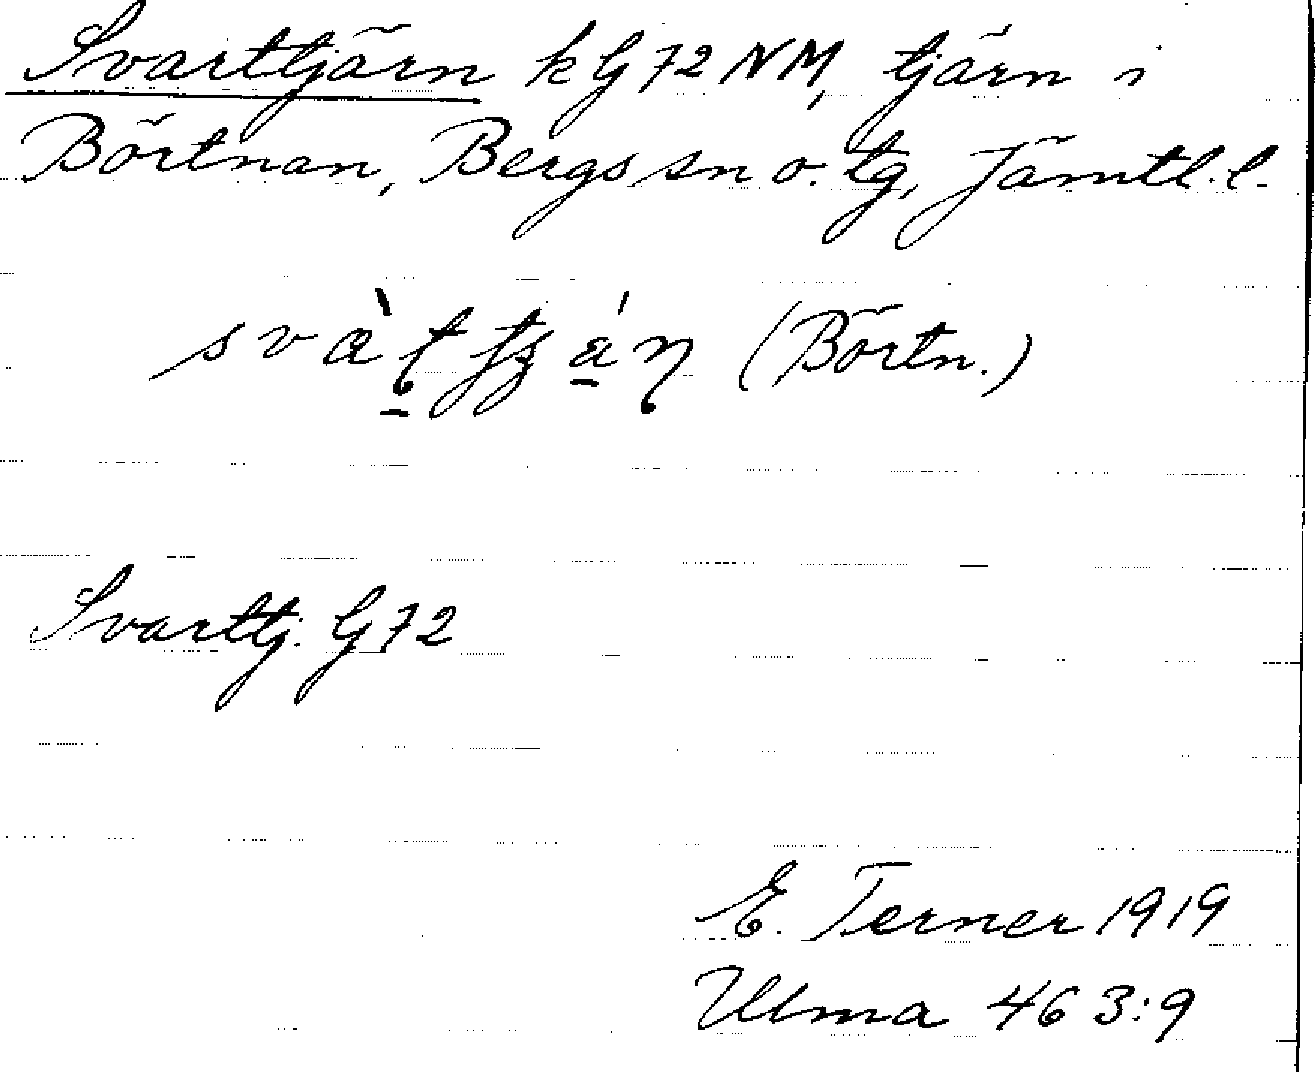 Svarttjärn k G 72 NM, tjärn i
Börtnan, Bergs sn o. tg, Jämtl. l.
(Börtn.)
Svarttj. G 72
E. Terner 1919
Ulma 463:9